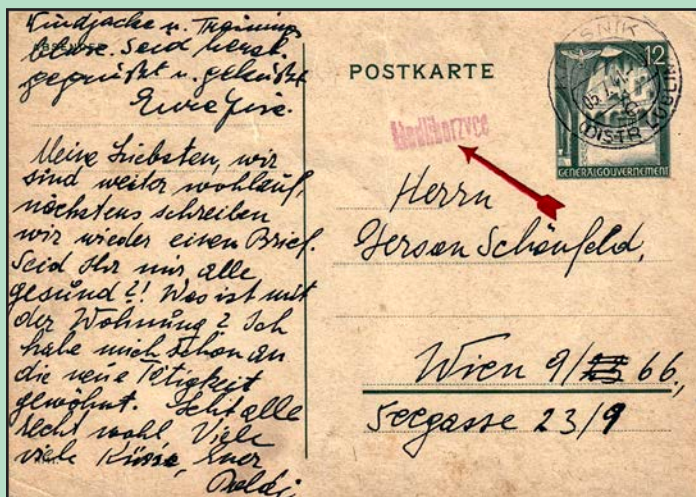 Windjacke u. Trainings
bluse. Seid herzl.
gegrüßt u. geküßt
Eure
Meine Liebsten, wir
sind weiter wohlauf,
nächstens schreiben
wir wieder einen Brief.
Seid Ihr mir alle
gesund?! Was ist mit
der Wohnung? Ich
habe mich schon an
die neue Tätigkeit
gewöhnt. Lebt alle
recht wohl. Viele
viele Küsse, Euer
Poldi
POSTKARTE
Modliborzyce
KRASNIK
DISTR LUBLIN
12
GENERALGOUVERNEMENT
Herrn
Gerson Schönfeld,
Wien 9/66,
Seegasse 23/9